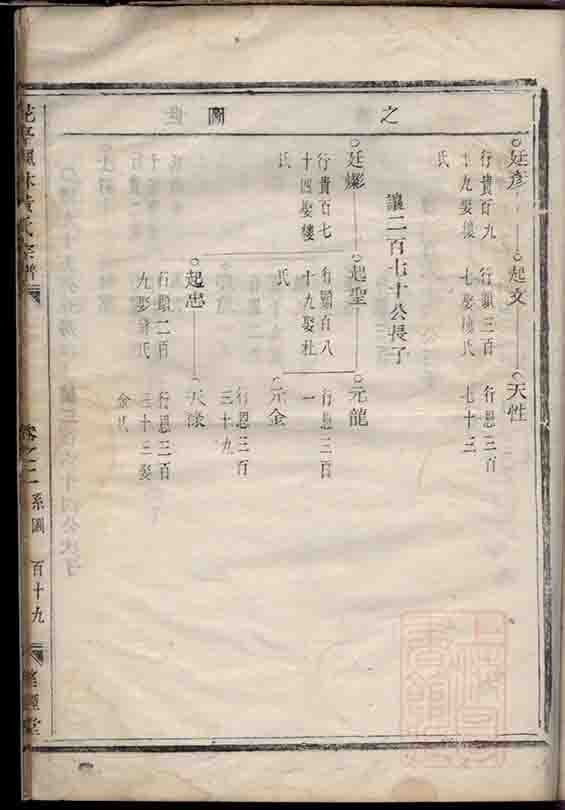 之
圖
世
廷彥
行貴百九
十九娶樓
氏
起文
行顯三百
七娶陳氏
天性
行恩三百
七十三
讓二百七十公長子
廷燦
行貴百七
十四娶樓
氏
起聖
行顯百八
十九娶杜
氏
元龍
行恩三百
一
元金
行恩三百
三十九
起忠
行顯二百
九娶
氏
天祿
行恩三百
三十三娶
金氏
黃氏宗譜
卷之二
系圖
百十九
堂